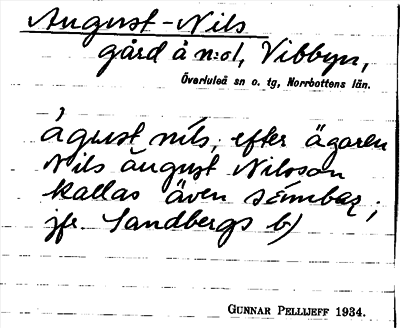 August-Nils
gård å n:o1, Vibbyn,
Överluleå sn o. tg, Norrbottens län.
águst nils, efter ägaren
Nils August Nilsson
kallas även
jfr. Sandbergs b)
GUNNAR PELLIJEFF 1934.